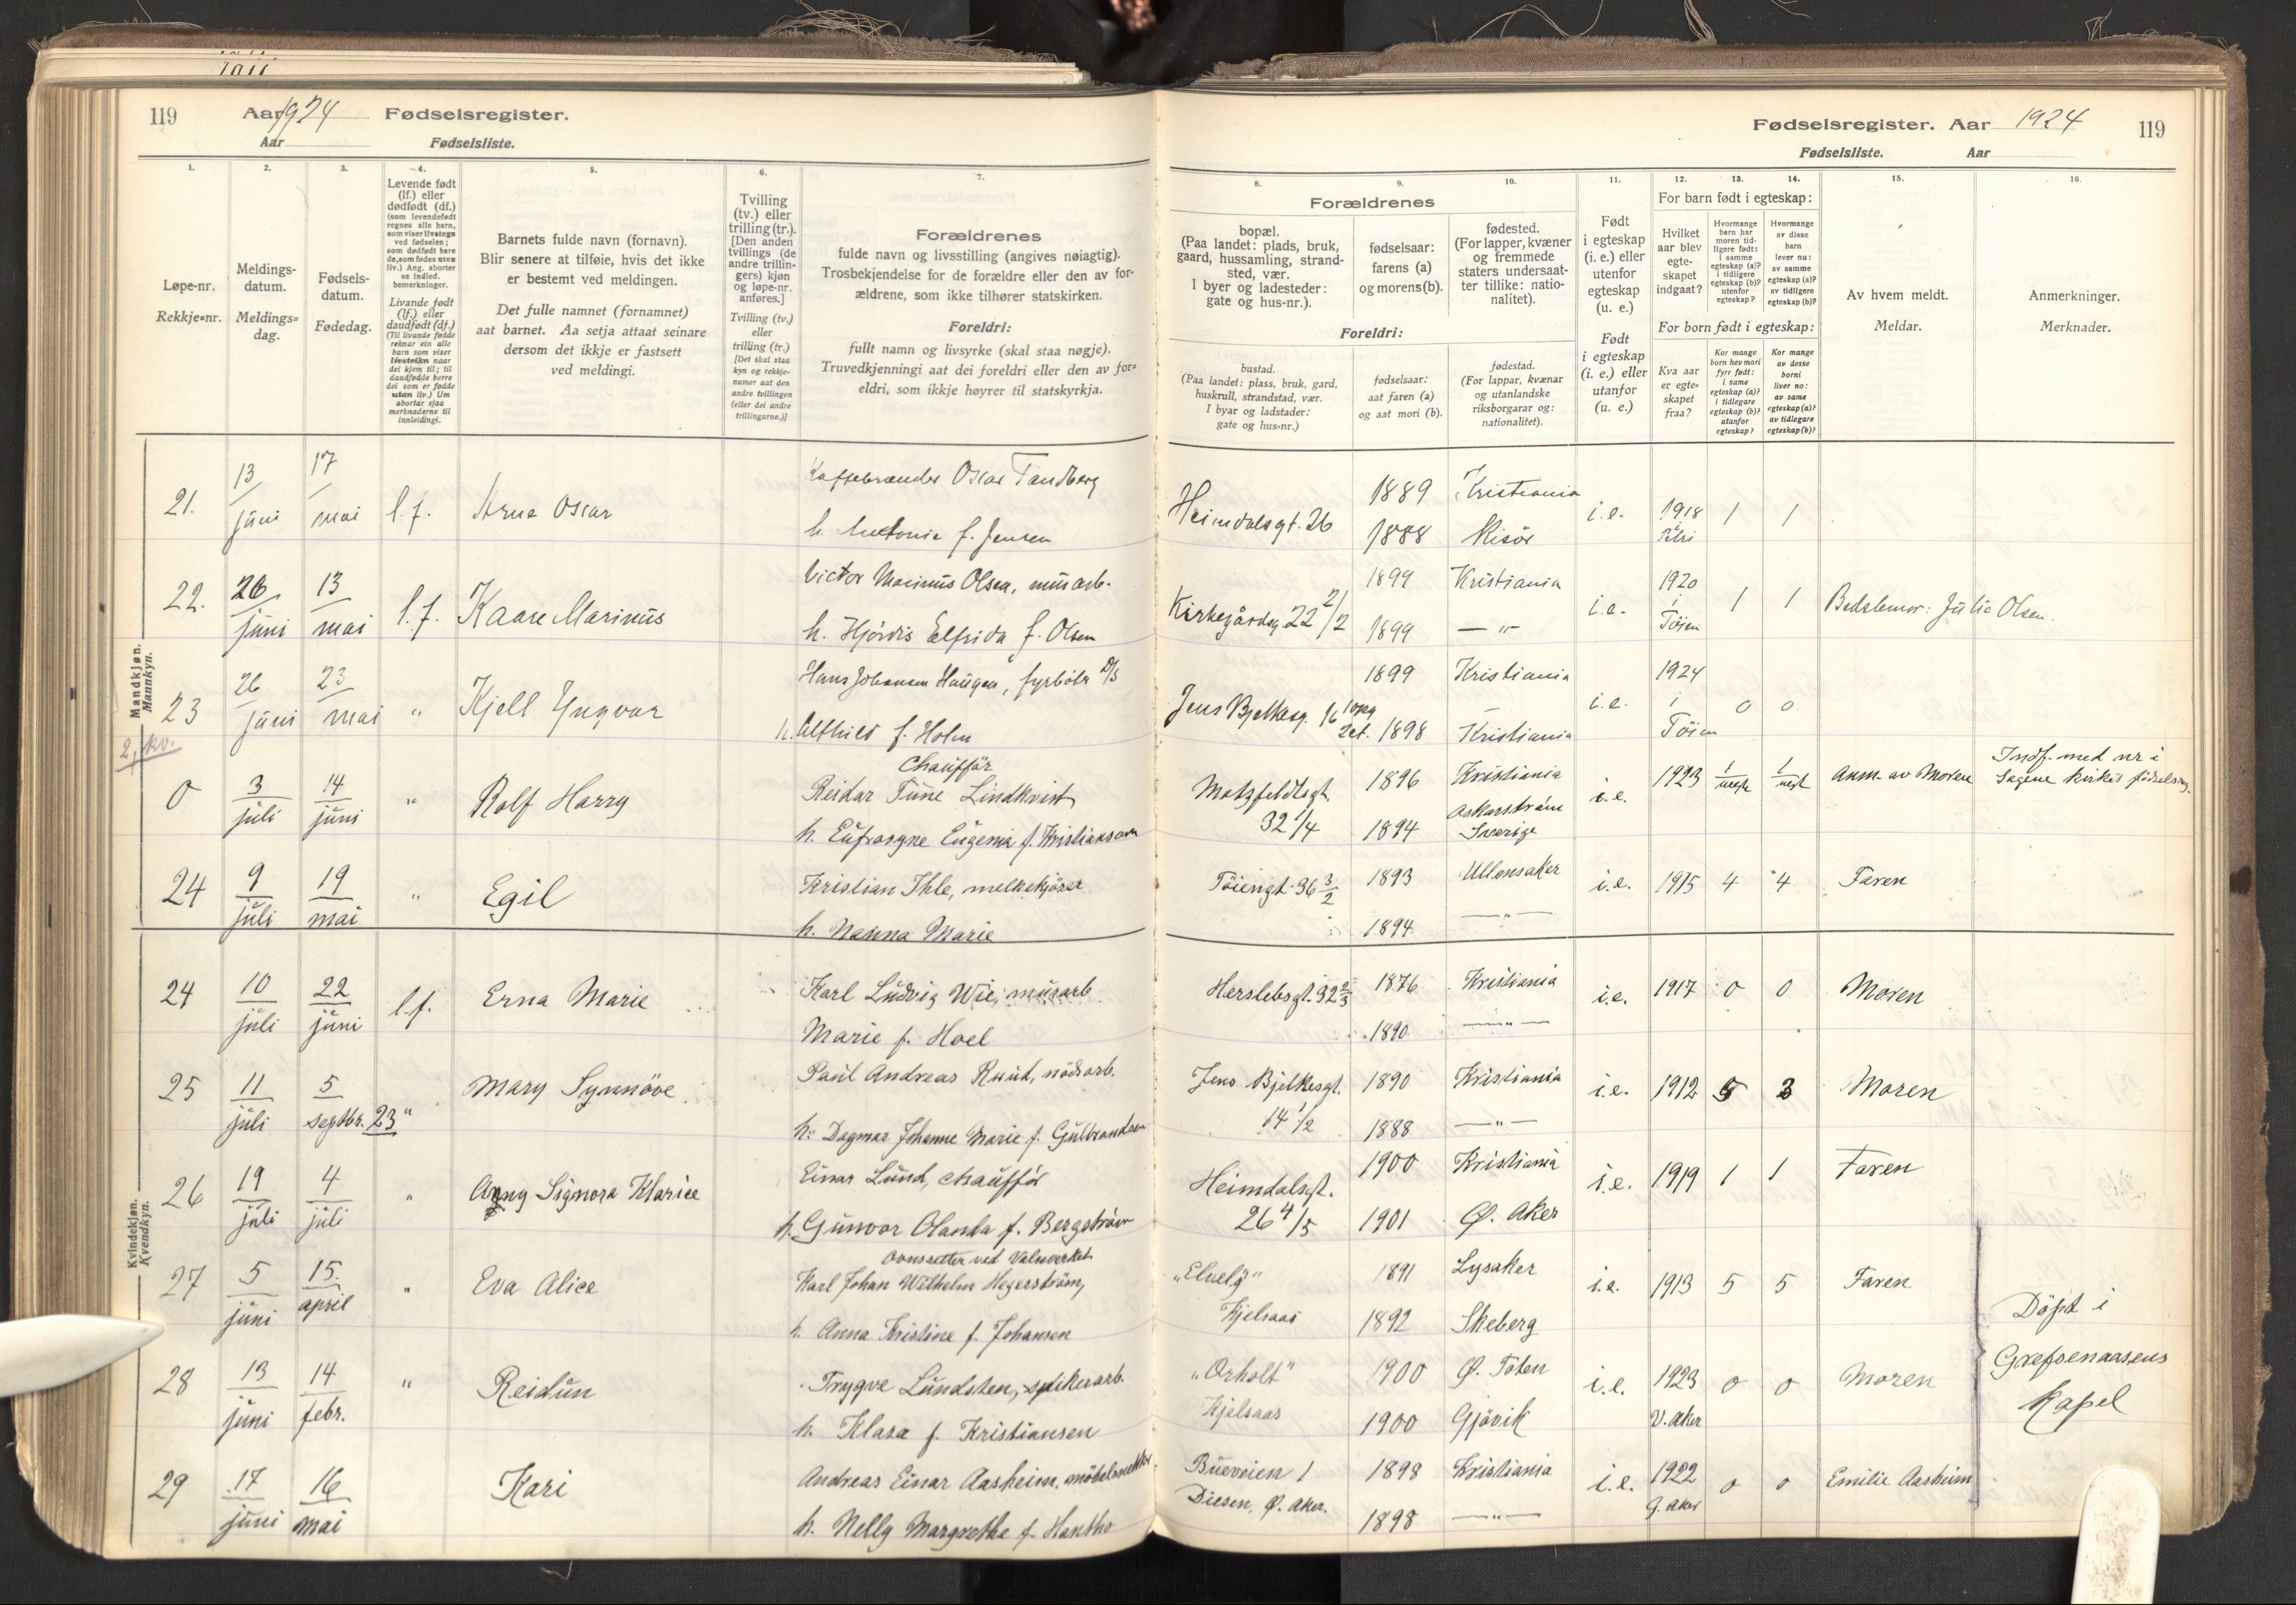 119 Aar 1924 Fødselsregister.
Aar Fødselsliste.
Fødselsregister. Aar 1924 119
Fødselsliste. Aar
1. 2. 3. 4. 5. 6. 7.
Løpe-nr.
Rekkje-nr.
Meldings-
datum.
Meldings-
dag.
Fødsels-
datum.
Fødedag.
Levende født
(lf.) eller
dødfødt (df.)
(som levendefødt
regnes alle barn,
som viser livstegn
ved fødselen;
som dødfødt bare
de, som fødes uten
liv.) Ang. aborter
se indled.
bemerkninger.
Livande født
(lf.) eller
daudfødt (df.)
(Til livande fødde
reknar ein alle
barn som viser
livsteikn naar
dei kjem til; til
daudfødde berre
dei som er fødde
utan liv.) Um
abortar sjaa
merknaderne til
innleidingi.
Barnets fulde navn (fornavn).
Blir senere at tilføie, hvis det ikke
er bestemt ved meldingen.
Det fulle namnet (fornamnet)
aat barnet. Aa setja attaat seinare
dersom det ikkje er fastsett
ved meldingi.
Tvilling
(tv.) eller
trilling (tr.).
[Den anden
tvillings (de
andre trillin-
gers) kjøn
og løpe-nr.
anføres.]
Tvilling (tv.)
eller
trilling (tr.)
[Det skal staa
kyn og rekkje-
numer aat den
andre tvillingen
(eller dei andre
trillingarne.)]
Forældrenes
fulde navn og livsstilling (angives nøiagtig).
Trosbekjendelse for de forældre eller den av for-
ældrene, som ikke tilhører statskirken.
Foreldri:
fullt namn og livsyrke (skal staa nøgje).
Truvedkjenningi aat dei foreldri eller den av for-
eldri, som ikkje høyrer til statskyrkja.
8. 9. 10. 11. 12. 13. 14. 15. 16.
Forældrenes
bopæl.
(Paa landet: plads, bruk,
gaard, hussamling, strand-
sted, vær.
I byer og ladesteder:
gate og hus-nr.).
fødselsaar:
farens (a)
og morens (b).
fødested.
(For lapper, kvæner
og fremmede
staters undersaat-
ter tillike: natio-
nalitet).
Foreldri:
bustad.
(Paa landet: plass, bruk, gard,
huskrull, strandstad, vær.
I byar og ladstader:
gate og hus-nr.)
fødselsaar:
aat faren (a)
og aat mori (b).
fødestad.
(For lappar, kvænar
og utanlandske
riksborgarar og:
nationalitet).
Født
i egteskap
(i. e.) eller
utenfor
egteskap
(u. e.)
Født
i egteskap
(i. e.) eller
utanfor
(u. e.)
For barn født i egteskap:
Hvilket
aar blev
egte-
skapet
indgaat?
Hvormange
barn har
moren tid-
ligere født:
i samme
egteskap (a)?
i tidligere
egteskap (b)?
utenfor
egteskap?
Hvormange
av disse
barn
lever nu:
av samme
egteskap (a)?
av tidligere
egteskap (b)?
For born født i egteskap:
Kva aar
er egte-
skapet
fraa?
Kor mange
born hev mori
fyrr født:
i same
egteskap (a)?
i tidlegare
egteskap (b)?
utanfor
egteskap?
Kor mange
av desse
borni
liver no:
av same
egteskap (a)?
av tidlegare
egteskap (b)?
Av hvem meldt.
Meldar.
Anmerkninger.
Merknader.
Mandkjøn.
Mannkyn.
21. 13/juni 17/mai l.f. Arne Oscar Kaffebrænder Oscar Tandberg Heimdalsgt. 26 1889 Kristiania i.e. 1918 1 1
h. Antonie f. Jensen 1888 Risör Petri
22. 26/juni 13/mai l.f. Kaare Marinus Victor Marinus Olsen, murarb. Kirkegårdsg. 22 2/2 1899 Kristiania i.e. 1920 1 1 Bedstemor: Julie Olsen.
h. Hjördis Elfrida f. Olsen 1899 — " — i Töien
23 26/juni 23/mai " Kjell Yngvar Hans Johansen Haugen, fyrböter D/S Jens Bjelkesg. 16 1opg 2et. 1899 Kristiania i.e. 1924 0 0
h. Alfhild f. Holm 1898 Kristiania i Töien
2. kv.
Chaufför
0 3/juli 14/juni " Rolf Harry Reidar Tüne Lindkvist Motzfeldtsgt. 1896 Kristiania i.e. 1923 1/uegte 1/uegt Anm. av Moren Indf. med nr i
h. Eufrosyne Eugenia f. Kristianson 32 1/4 1894 Oskarström Sverige Sagene kirkes födselsreg.
24 9/juli 19/mai " Egil Kristian Ihle, melkekjörer Töiengt. 36 3/2 1893 Ullensaker i.e. 1915 4 4 Faren
h. Nanna Marie 1894 — " —
Kvindekjøn.
Kvendkyn.
24 10/juli 22/juni l.f. Erna Marie Karl Ludvig Wie, murarb. Herslebsgt. 32 2/3 1876 Kristiania i.e. 1917 0 0 Moren
Marie f. Hoel 1890 — " —
25 11/juli 5/septbr. 23 " Mary Synnöve Paul Andreas Ruud, nödsarb. Jens Bjelkesgt. 1890 Kristiania i.e. 1912 5 3 Moren
h. Dagmar Johanne Marie f. Gulbrandsen 14 1/2 1888 — " —
26 19/juli 4/juli " Anny Signora Klarice Einar Lund, chauffør Heimdalsgt. 1900 Kristiania i.e. 1919 1 1 Faren
h. Gunvor Olanda f. Bergström 26 4/5 1901 Ø. Aker
Ovnssetter ved Valseverket
27 5/juni 15./april " Eva Alice Karl Johan Wilhelm Hegerström, "Elvely" 1891 Lysaker i.e. 1913 5 5 Faren
h. Anna Kristine f. Johansen Kjelsaas 1892 Skeberg
Döpt i
Grefsenaasens
kapel
28 13/juni 14/febr. " Reidun Trygve Lundsten, spikerarb. "Orholt" 1900 Ø. Toten i.e. 1923 0 0 Moren
h. Klara f. Kristiansen Kjelsaas 1900 Gjövik V. Aker
29 17/juni 16/mai Kari Andreas Einar Aasheim, möbelsnekker Bueveien 1 1898 Kristiania i.e. 1922 0 0 Emilie Aasheim
h. Nelly Margrethe f. Hantho Disen, Ø. Aker. 1898 — " — Ø. Aker